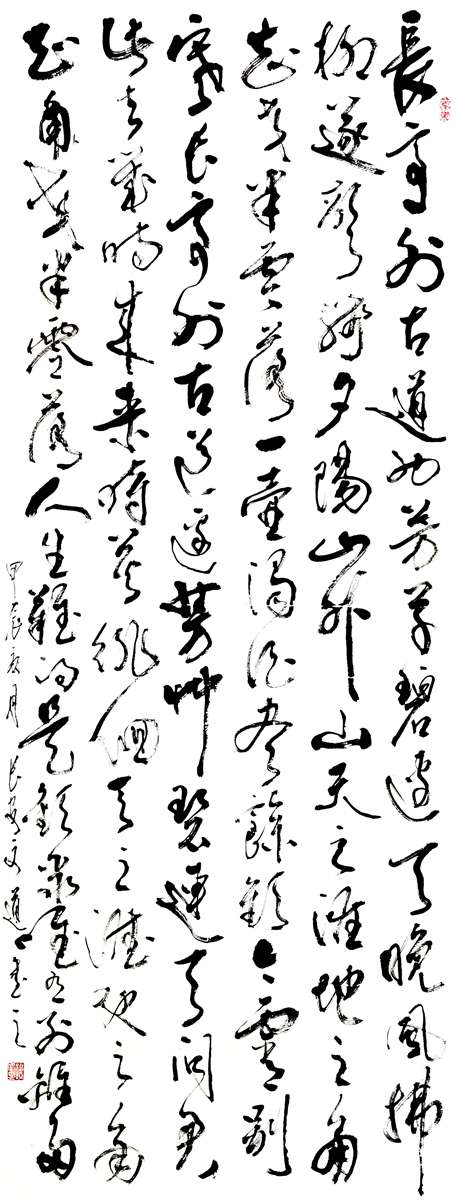 長亭外古道边芳草碧連天晚風拂
柳邃聲殘夕陽山外山天之涯地之角
知交半零落一壺濁酒盡餘歡今宵別
寒长亭外古道邊芳艸碧連天問君
此去幾時来来時莫徘徊天之涯地之角
知角交半零落人生難得是歡聚唯有別離多
甲辰夏月长安文道書之